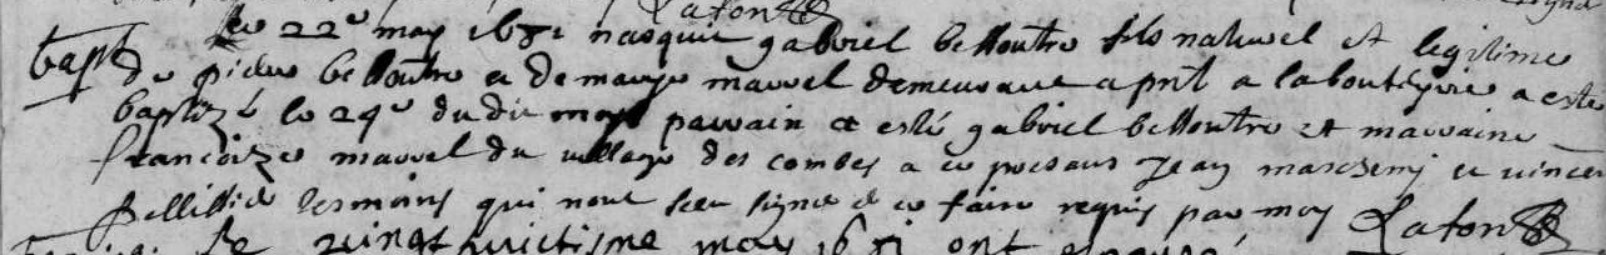 Lafont
bapt le 22e may 1681 nasquit gabriel belloutre fils naturel et legitime
de pierre belloutre et de marye maurel demeurant a pnt a la bouteyrie a este
baptizé le 24e dudit moys parrain a esté gabriel belloutre et marraine
francoize maurel du village des combes a ce presans Jean et vincen
pellissie tesmoins qui nont sceu signer de ce faire requis par moy Lafont
Le vingt huictisme may 1681 ont espousé